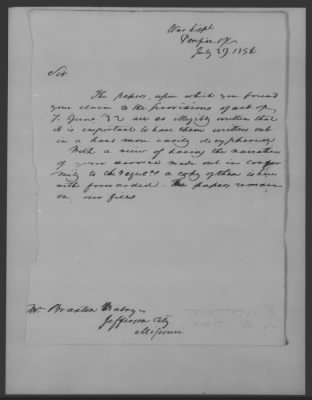 War Dept
Pension Off
July 29. 1836
Sir
The papers, upon which you found
your claim to the provisions of act of
7. June '32 are so illegibly written that
it is important to have them written out
in a hand more easily decyphered
With a view of having the narrative
of your service made out in confor
mity to the request a copy of them is here
with forwarded - The papers remain
on our files
Mr Braxton
Jefferson City
Missouri